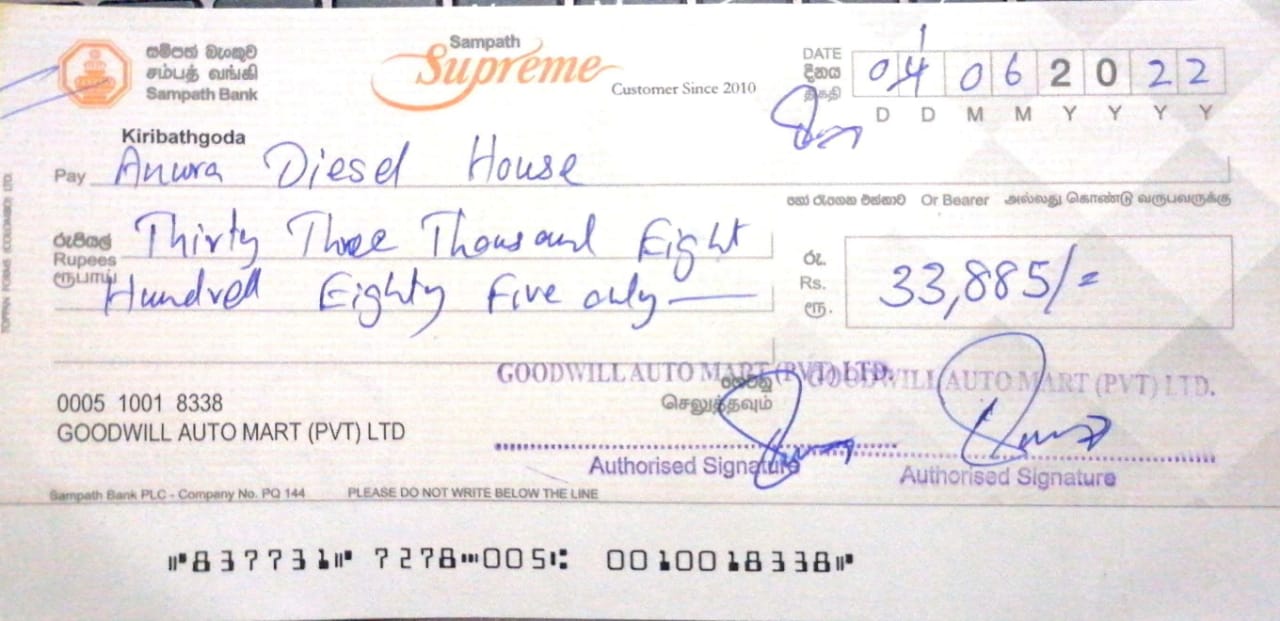 සම්පත් බැංකුව
சம்பத் வங்கி
Sampath Bank
Sampath
Supreme
Customer Since 2010
DATE
දිනය
திகதி
04 06 2022
D D M M Y Y Y Y
Kiribathgoda
Pay Anura Diesel House
හෝ රැගෙන එන්නාට Or Bearer அல்லது கொண்டு வருபவருக்கு
රුපියල්
Rupees
ரூபாய்
Thirty Three Thousand Eight
Hundred Eighty Five only
රු.
Rs.
ரூ.
33,885/=
GOODWILL AUTO MART (PVT) LTD. GOODWILL AUTO MART (PVT) LTD.
செலுத்தவும்
0005 1001 8338
GOODWILL AUTO MART (PVT) LTD
Authorised Signature Authorised Signature
Sampath Bank PLC - Company No. PQ 144 PLEASE DO NOT WRITE BELOW THE LINE
⑈837731⑈ 7278⑉005⑆ 0010018338⑈
TOPPAN FORMS (COLOMBO) LTD.